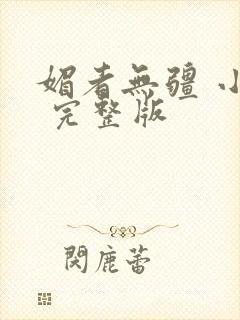 媚者無疆 小
完整版
閱鹿蕾